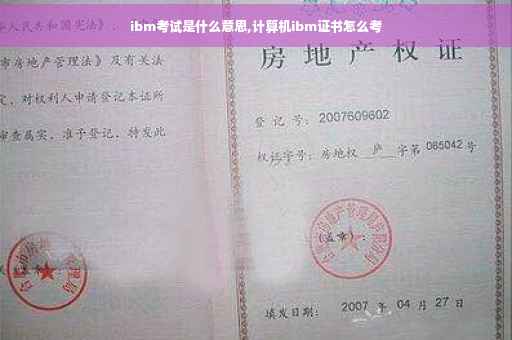 ibm考试是什么意思,计算机ibm证书怎么考
华人民共和国宪法》
市房地产管理法》及有关法
定,对权利人申请登记本证所
审查属实,准予登记,特发此
房地产权证
登记号: 2007609602
权证字号: 房地权 庐 字第 085042 号
(盖章):
填发日期: 2007 年 04 月 27 日